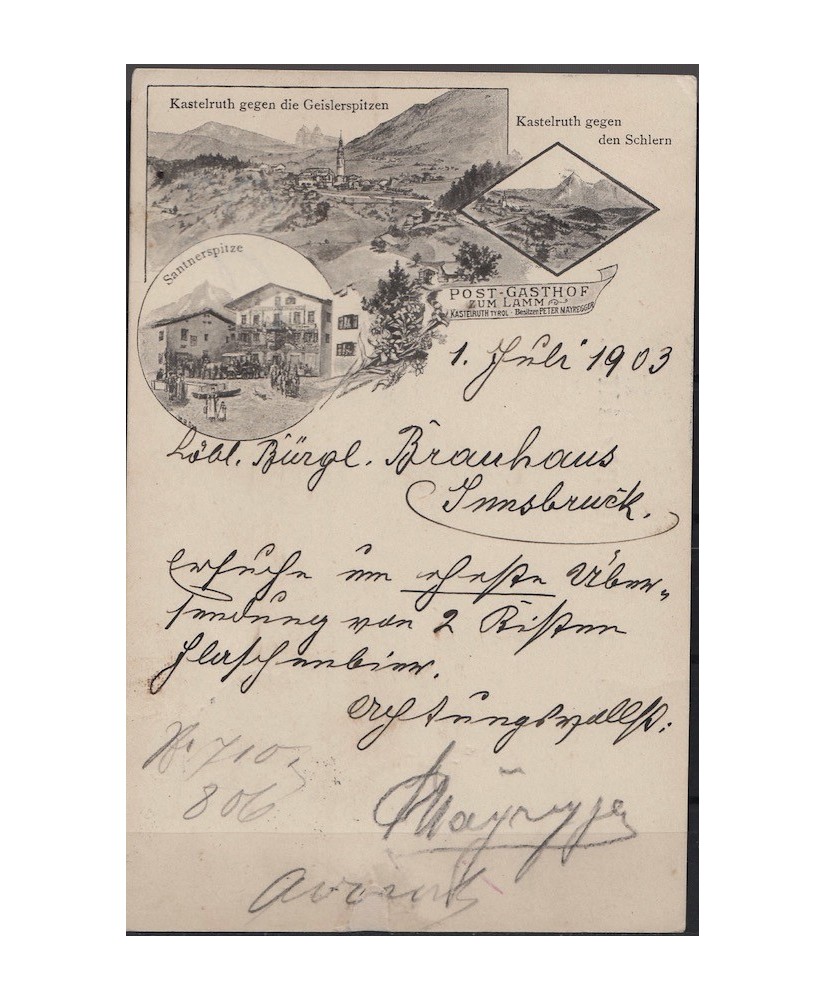 Kastelruth gegen die Geislerspitzen
Kastelruth gegen
den Schlern
Santnerspitze
POST-GASTHOF
ZUM LAMM
KASTELRUTH TYROL - Besitzer PETER MAYREGGER
1. Juli 1903
Löbl. Bürgl. Brauhaus
Innsbruck.
Ersuche um eheste Über-
sendung von 2 Kisten
Flaschenbier.
Achtungsvollst:
710
806
Mayregger